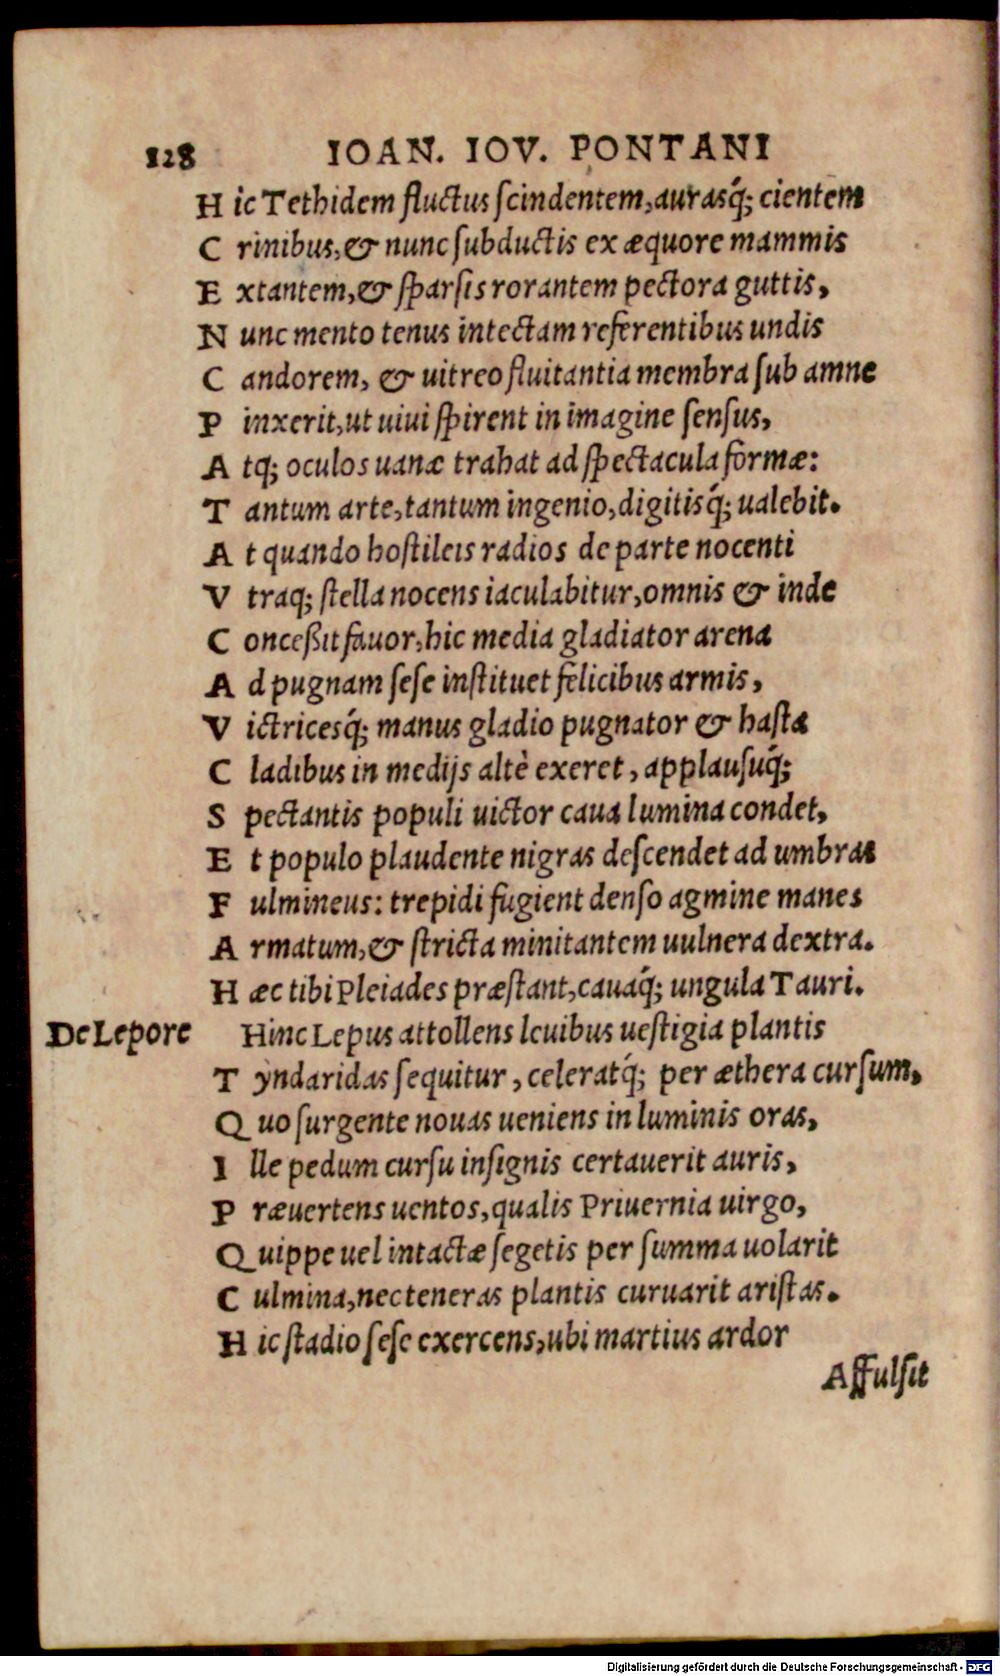 128 IOAN. IOV. PONTANI
H ic Tethidem fluctus ſcindentem, aurasq́; cientem
C rinibus, & nunc ſubductis ex æquore mammis
E xtantem, & ſparſis rorantem pectora guttis,
N unc mento tenus intectam referentibus undis
C andorem, & uitreo fluitantia membra ſub amne
P inxerit, ut uiui ſpirent in imagine ſenſus,
A tq; oculos uanæ trahat ad ſpectacula formæ:
T antum arte, tantum ingenio, digitisq́; ualebit.
A t quando hoſtileis radios de parte nocenti
V traq; ſtella nocens iaculabitur, omnis & inde
C onceßit fauor, hic media gladiator arena
A d pugnam ſeſe inſtituet felicibus armis,
V ictricesq́; manus gladio pugnator & haſta
C ladibus in medijs altè exeret, applauſuq́;
S pectantis populi uictor caua lumina condet,
E t populo plaudente nigras deſcendet ad umbras
F ulmineus: trepidi fugient denſo agmine manes
A rmatum, & ſtricta minitantem uulnera dextra.
H æc tibi Pleiades præſtant, cauaq́; ungula Tauri.
De Lepore Hinc Lepus attollens leuibus ueſtigia plantis
T yndaridas ſequitur, celeratq́; per æthera curſum,
Q uo ſurgente nouas ueniens in luminis oras,
I lle pedum curſu inſignis certauerit auris,
P ræuertens uentos, qualis Priuernia uirgo,
Q uippe uel intactæ ſegetis per ſumma uolarit
C ulmina, nec teneras plantis curuarit ariſtas.
H ic ſtadio ſeſe exercens, ubi martius ardor
Affulſit
Digitalisierung gefördert durch die Deutsche Forschungsgemeinschaft - DFG